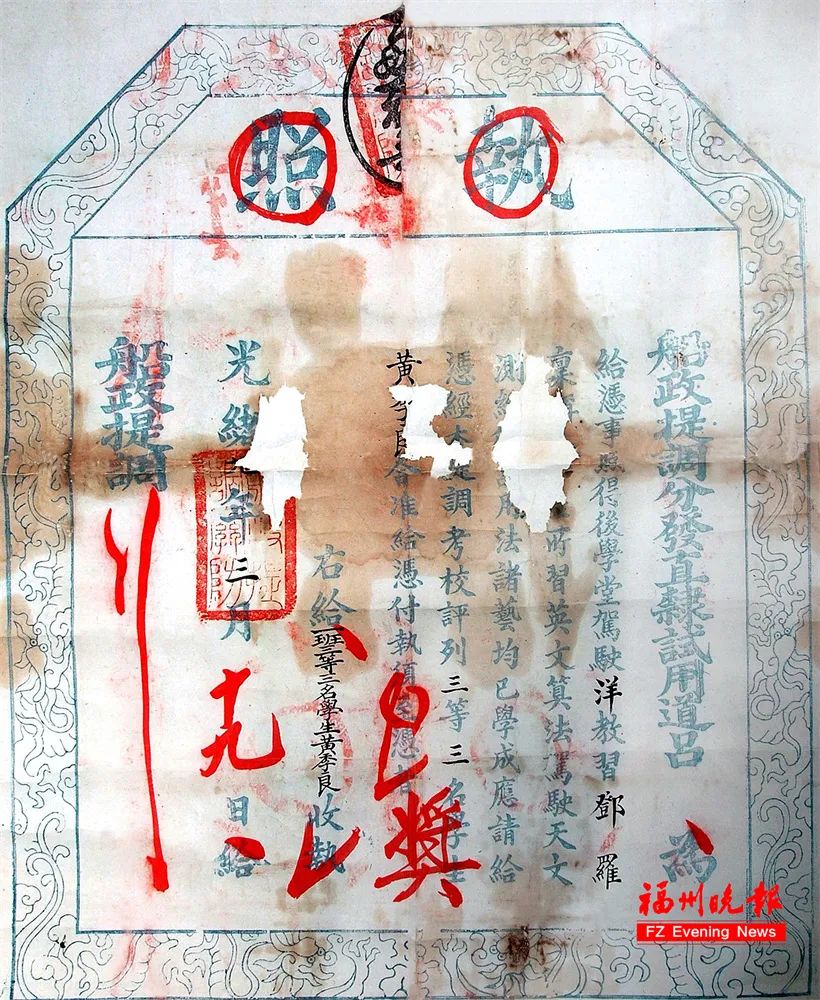 執照
船政提調分發直隸試用道呂 為
給憑事照得後學堂駕駛洋教習鄧羅
稟 所習英文算法駕駛天文
測 法諸藝均已學成應請給
憑經本 調考校評列三等三名學生
黃季良 合准給憑付執須 憑者
右給 班三等三名學生黃季良 收執
光緒 年三月 日給
船政提調
獎
福州晚報
FZ Evening News